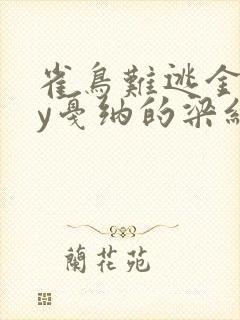 雀鳥難逃全
y戛纳的梁細
蘭花苑